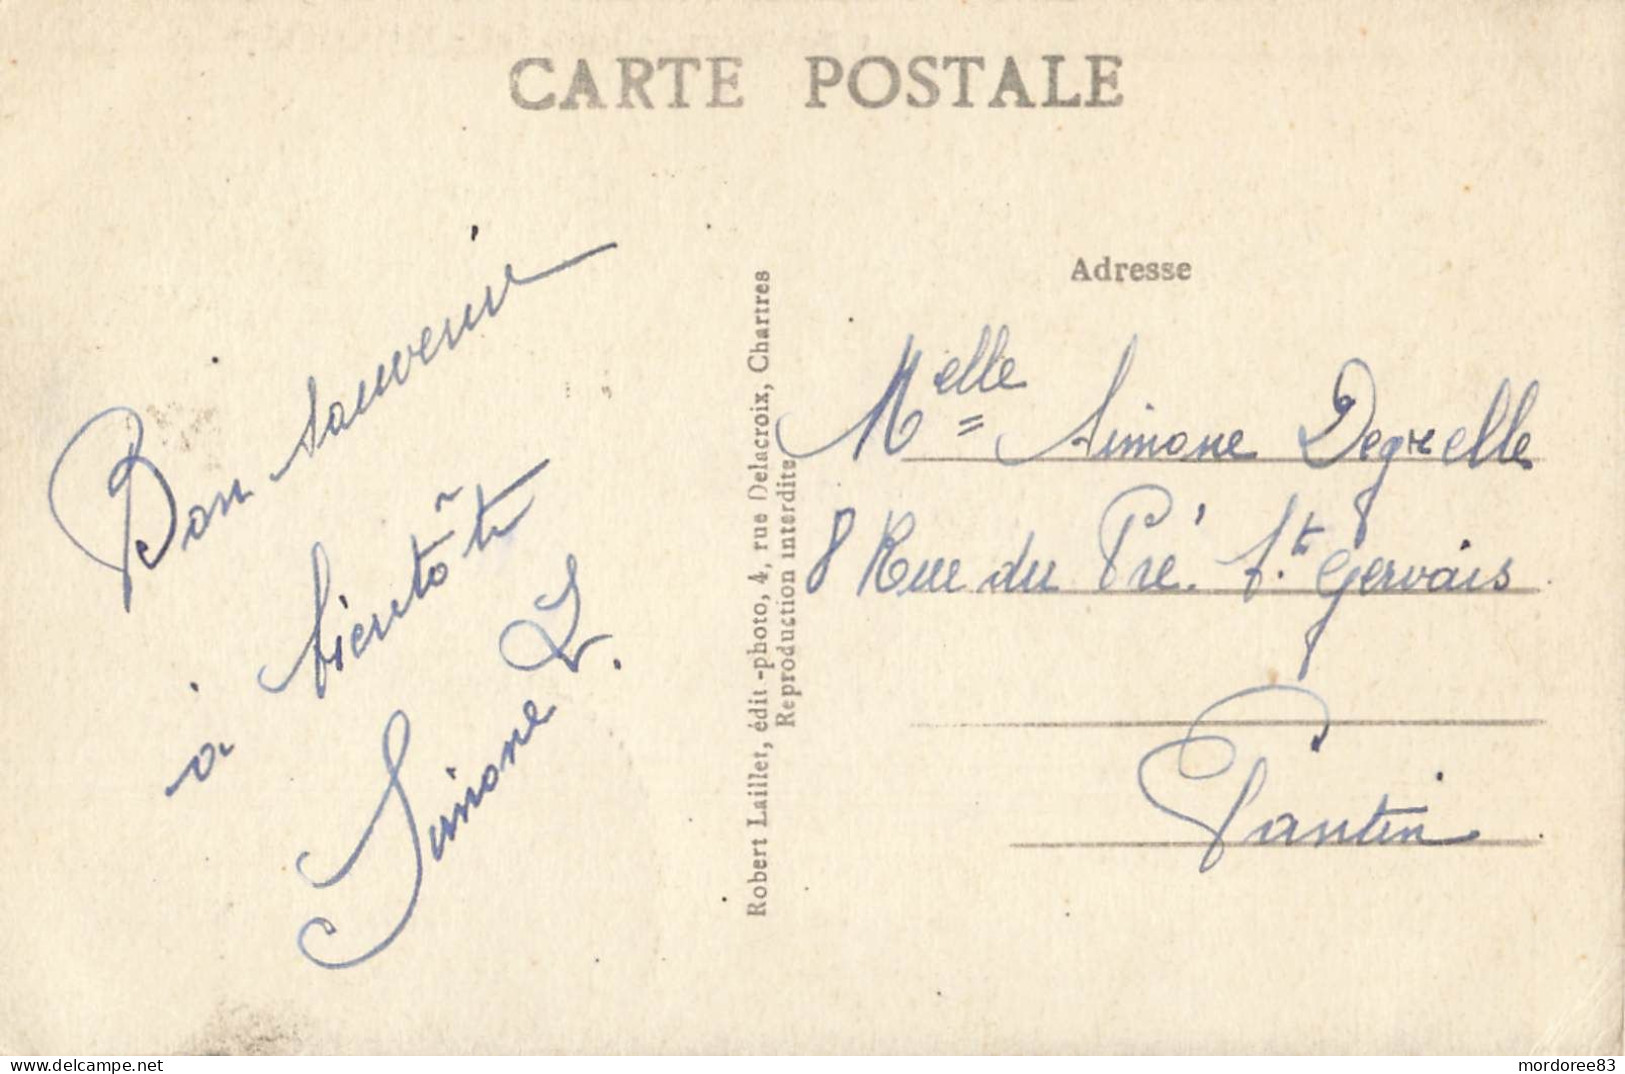 CARTE POSTALE
Bon souvenir
à bientôt
Simone L.
Robert Laillet, édit-photo, 4, rue Delacroix, Chartres
Reproduction interdite
Adresse
Melle Simone Degrelle
8 Rue du Pré. St. Gervais
Pantin
www.delcampe.net
mordoree83